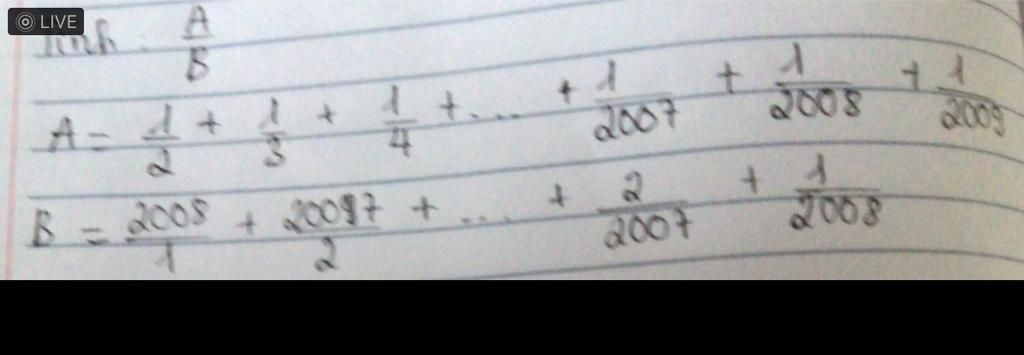 LIVE
Tính: A/B
A = 1/2 + 1/3 + 1/4 + ... + 1/2007 + 1/2008 + 1/2009
B = 2008/1 + 2007/2 + ... + 2/2007 + 1/2008